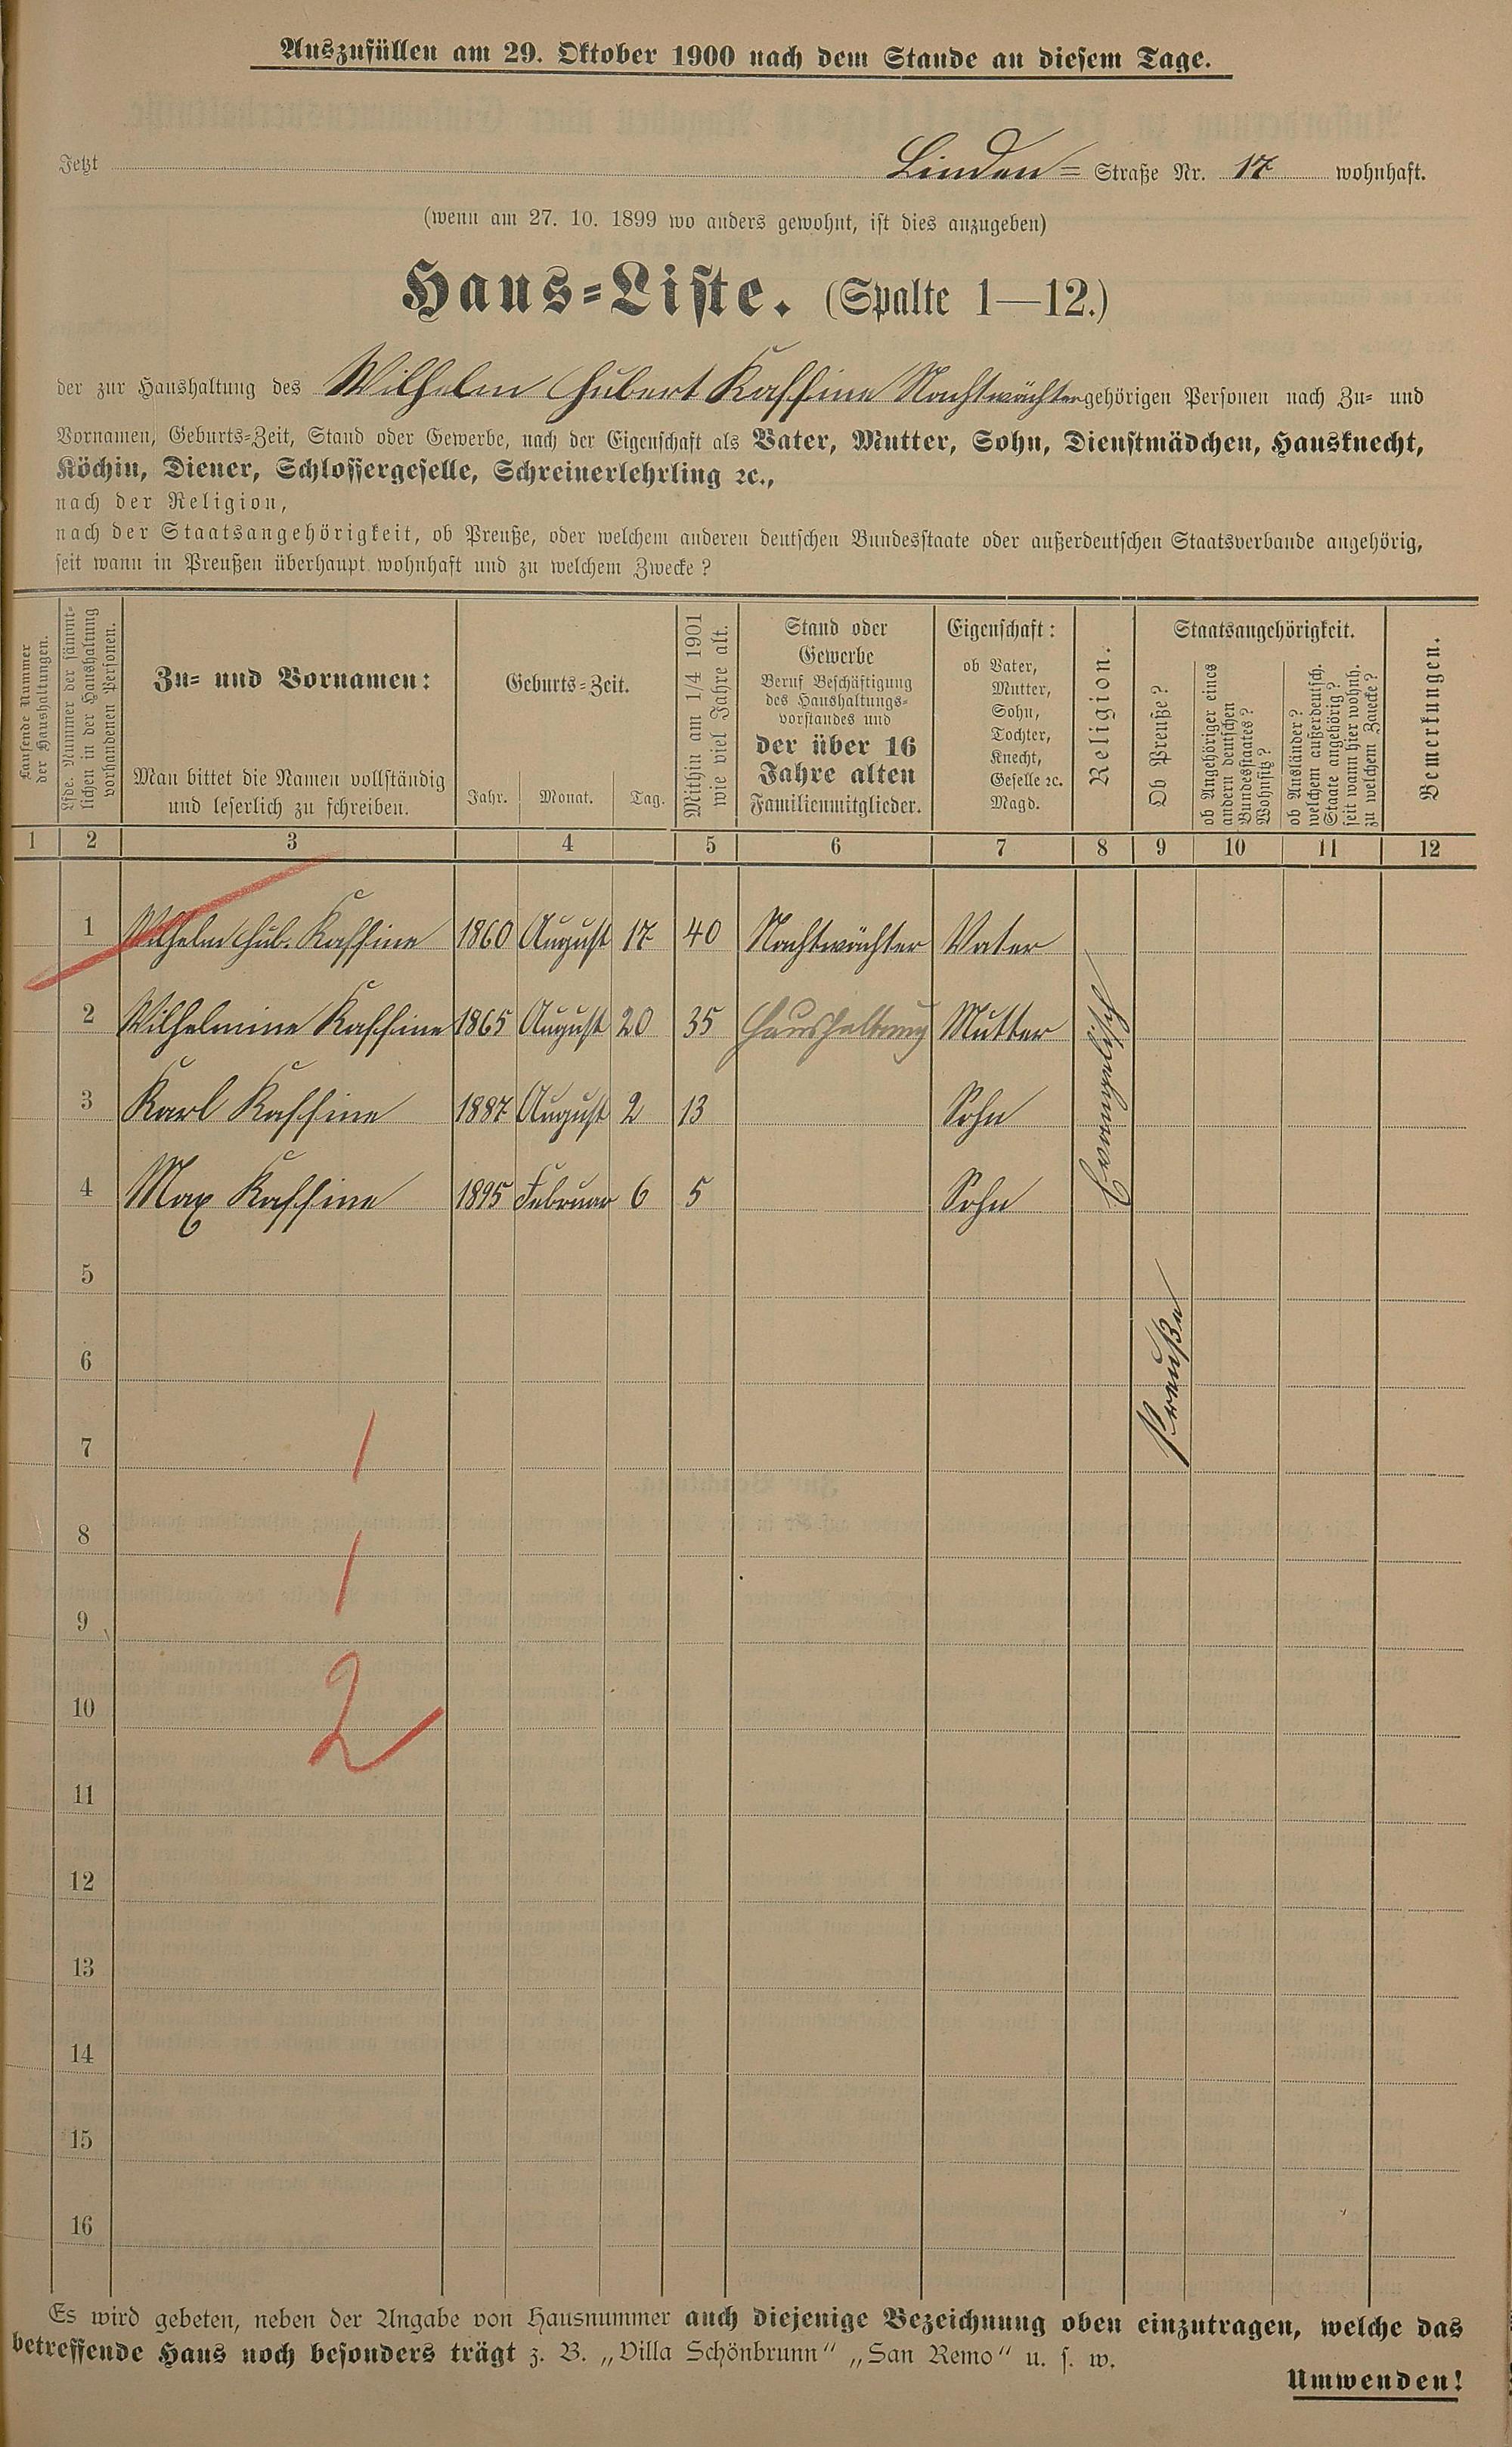 Auszufüllen am 29. Oktober 1900 nach dem Stande an diesem Tage.
Jetzt Linden= Straße Nr. 17 wohnhaft.
(wenn am 27. 10. 1899 wo anders gewohnt, ist dies anzugeben)
Haus=Liste. (Spalte 1—12.)
der zur Haushaltung des Wilhelm Hubert Kaffine Nachtwächter gehörigen Personen nach Zu= und
Vornamen, Geburts=Zeit, Stand oder Gewerbe, nach der Eigenschaft als Vater, Mutter, Sohn, Dienstmädchen, Hausknecht,
Köchin, Diener, Schlossergeselle, Schreinerlehrling ꝛc.,
nach der Religion,
nach der Staatsangehörigkeit, ob Preuße, oder welchem anderen deutschen Bundesstaate oder außerdeutschen Staatsverbande angehörig,
seit wann in Preußen überhaupt wohnhaft und zu welchem Zwecke?
Laufende Nummer
der Haushaltungen.
Lfde. Nummer der sämmt-
lichen in der Haushaltung
vorhandenen Personen.
Zu= und Vornamen:
Man bittet die Namen vollständig
und leserlich zu schreiben.
Geburts=Zeit.
Jahr. Monat. Tag.
Mithin am 1/4 1901
wie viel Jahre alt.
Stand oder
Gewerbe
Beruf Beschäftigung
des Haushaltungs-
vorstandes und
der über 16
Jahre alten
Familienmitglieder.
Eigenschaft:
ob Vater,
Mutter,
Sohn,
Tochter,
Knecht,
Geselle ꝛc.
Magd.
Religion.
Staatsangehörigkeit.
Ob Preuße?
ob Angehöriger eines
andern deutschen
Bundesstaates?
Wohnsitz?
ob Ausländer?
welchem außerdeutsch.
Staate angehörig?
seit wann hier wohnh.
zu welchem Zwecke?
Bemerkungen.
1 2 3 4 5 6 7 8 9 10 11 12
1 Wilhelm Hub. Kaffine 1860 August 17 40 Nachtwächter Vater
2 Wilhelmine Kaffine 1865 August 20 35 Haushaltung Mutter
3 Karl Kaffine 1887 August 2 13 Sohn
4 Max Kaffine 1895 Februar 6 5 Sohn
Evangelisch
5
6
Preuße
7
1
8
1
9
10
2
11
12
13
14
15
16
Es wird gebeten, neben der Angabe von Hausnummer auch diejenige Bezeichnung oben einzutragen, welche das
betreffende Haus noch besonders trägt z. B. „Villa Schönbrunn“ „San Remo“ u. s. w.
Umwenden!